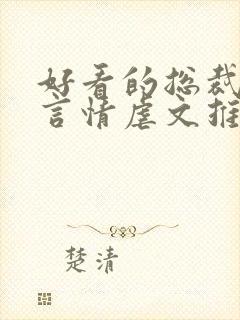 好看的总裁
言情虐文推
楚清